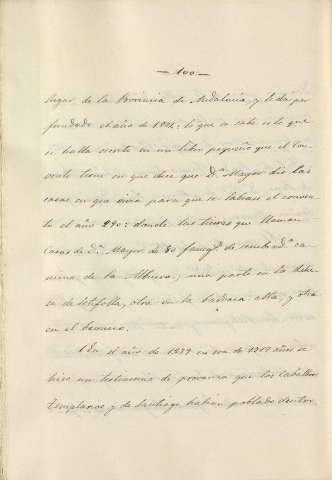 — 100 —
lugar de la Provincia de Andalucia, y le da por
fundado el año de 1204: lo que se sabe es lo que
se halla escrito en un libro pequeño que el Con-
vento tiene en que dice que D.ª Mayor dio las
casas en que vivia para que se labrase el conven-
to el año 290: donole las tierras que llaman
Casas de D.ª Mayor de 80 faneg.s de sembrad.ª ca-
mino de la Albuera; una parte en la dehe-
sa de , otra en la bardoca alta, y otra
en el
En el año de 1277 en era de 1315 años se
hizo un testimonio de provanza que los Caballeros
Templarios y de Santiago habian poblado dentro